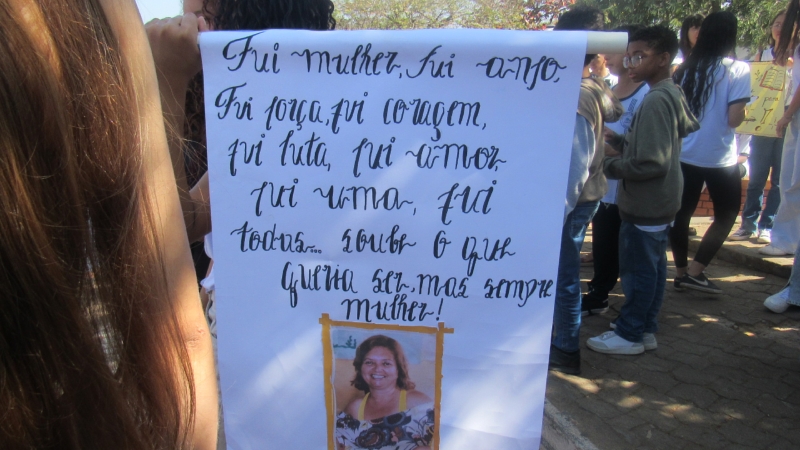 Fui mulher, fui anjo,
Fui força, fui coragem,
fui luta, fui amor,
fui uma, fui
todas... soube o que
queria ser, mas sempre
mulher!